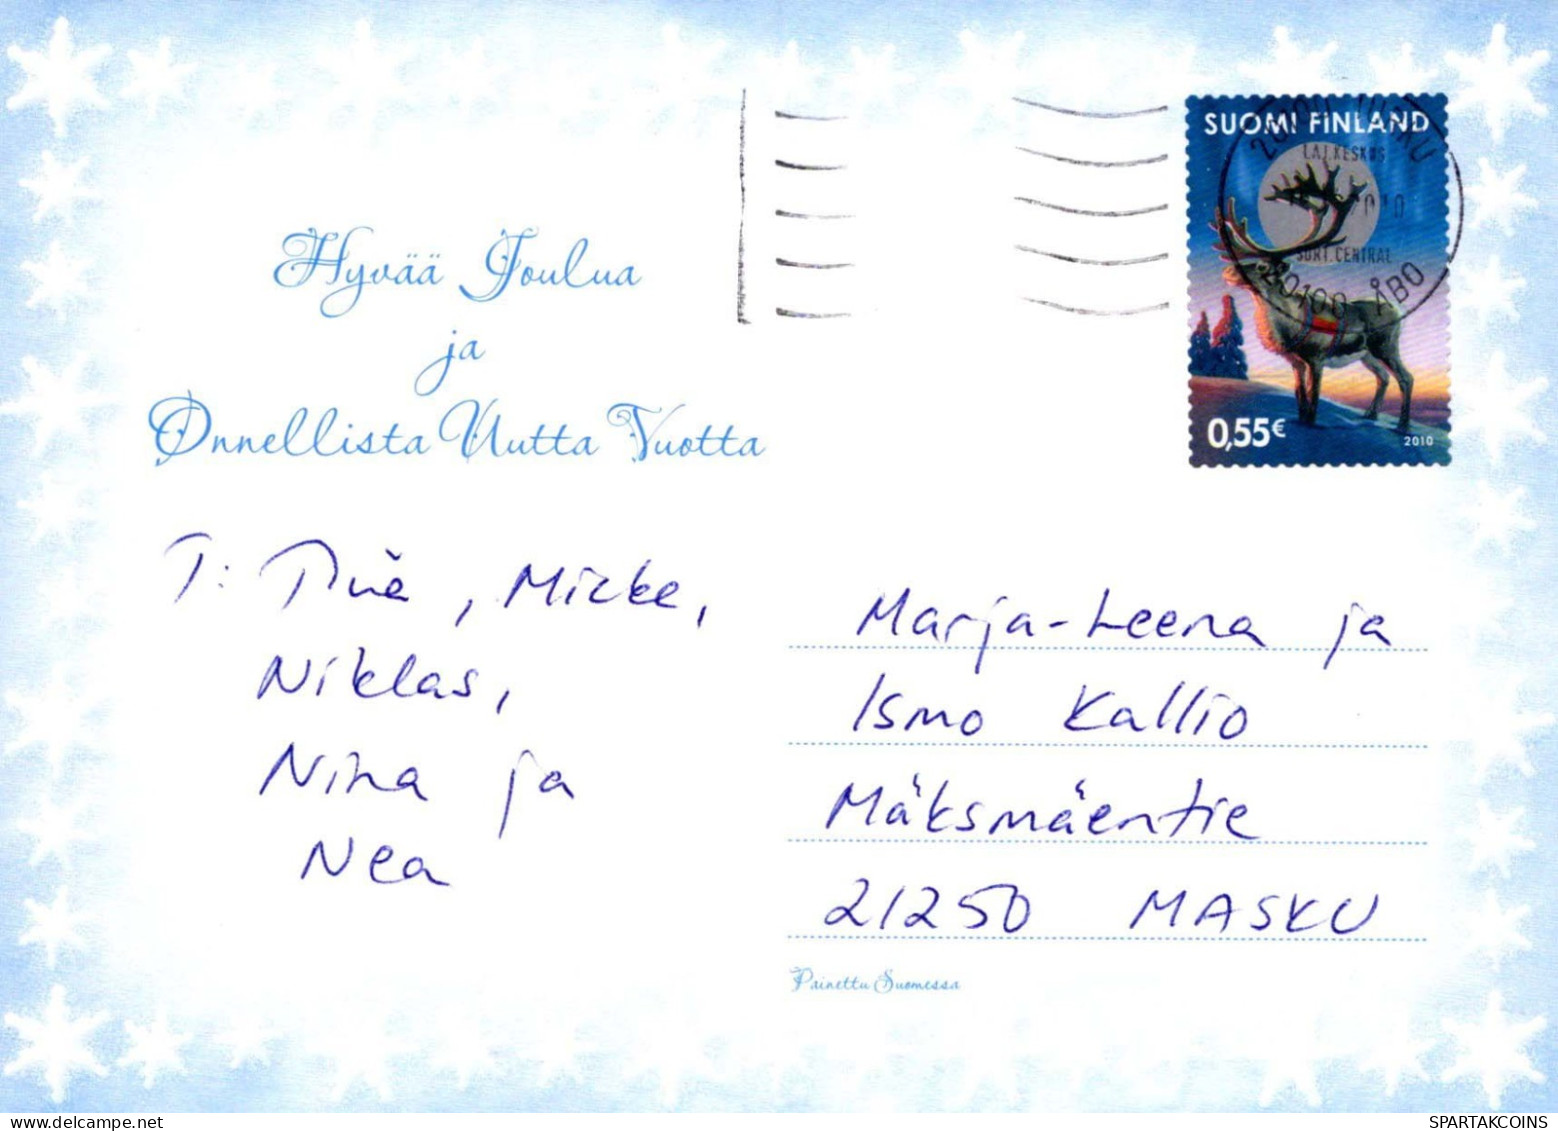 SUOMI FINLAND
20100 TURKU
LAJ.KESKUS
SORT.CENTRAL
20100 ÅBO
0,55€
2010
Hyvää Joulua
ja
Onnellista Uutta Vuotta
T: Tiia, Micke,
Niklas,
Nina ja
Nea
Marja-Leena ja
Ismo Kallio
Mäksmäentie
21250 MASKU
Painettu Suomessa
SPARTAKCOINS